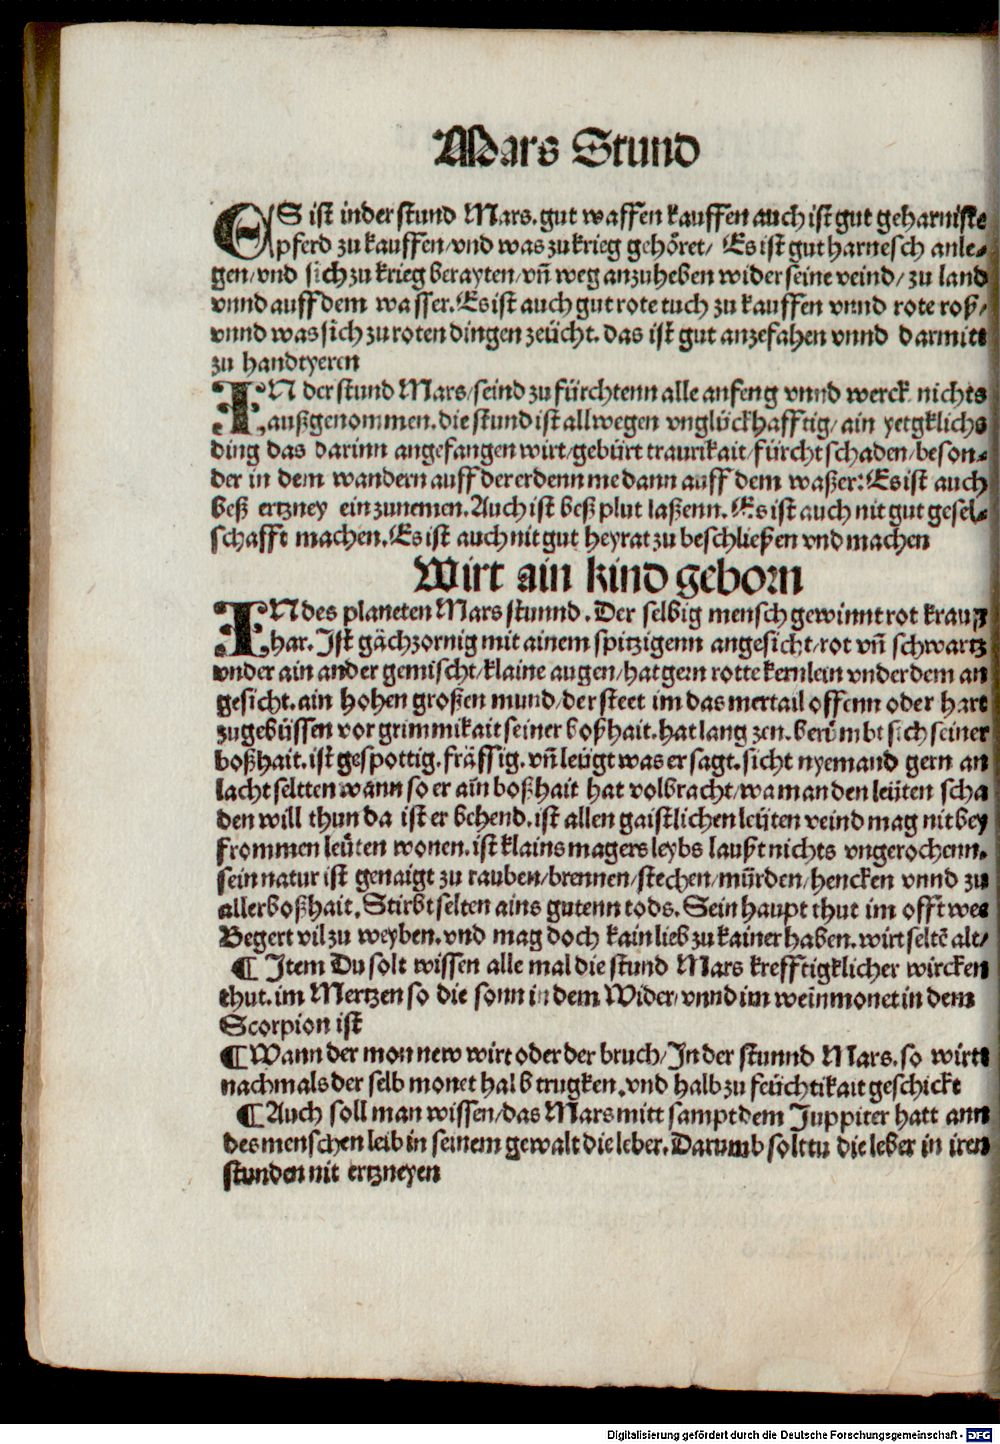 Mars Stund
ES ist in der stund Mars. gut waffen kauffen auch ist gut geharniste
pferd zu kauffen/ vnd was zu krieg gehöret/ Es ist gut harnesch anle⸗
gen/ vnd sich zu krieg berayten/ vñ weg anzuheben wider seine veind/ zu land
vnnd auff dem wasser. Es ist auch gut rote tuch zu kauffen vnnd rote roß/
vnnd was sich zu roten dingen zeücht. das ist gut anzefahen vnnd darmitt
zu handtyeren
IN der stund Mars/ seind zu fürchtenn alle anfeng vnnd werck nichts
außgenommen. die stund ist allwegen vnglückhafftig/ ain yetgklichs
ding das darinn angefangen wirt/ gebürt traurikait/ fürcht schaden/ beson⸗
der in dem wandern auff der erdenn me dann auff dem waßer: Es ist auch
beß ertzney ein zunemen. Auch ist beß plut laßenn. Es ist auch nit gut gesel⸗
schafft machen. Es ist auch nit gut heyrat zu beschließen vnd machen
Wirt ain kind geborn
IN des planeten Mars stunnd. Der selbig mensch gewinnt rot krauß
har. Ist gächzornig mit ainem spitzigenn angesicht/ rot vñ schwartz
vnder ain ander gemischt/ klaine augen/ hat gern rotte kernlein vnder dem an
gesicht. ain hohen großen mund/ der steet im das mertail offenn oder hart
zugebüssen vor grimmikait seiner boßhait. hat lang zen. berümbt sich seiner
boßhait. ist gespottig. frässig. vñ leügt was er sagt. sicht nyemand gern an
lacht seltten wann so er ain boßhait hat volbracht/ wa man den leüten scha
den will thun da ist er behend. ist allen gaistlichen leüten veind mag nit bey
frommen leüten wonen. ist klains magers leybs laußt nichts vngerochenn.
sein natur ist genaigt zu rauben/ brennen/ stechen/ mürden/ hencken vnnd zu
aller boßhait. Stirbt selten ains gutenn tods. Sein haupt thut im offt wee
Begert vil zu weyben. vnd mag doch kain lieb zu kainer haben. wirt seltē alt/
¶ Item Du solt wissen alle mal die stund Mars krefftigklicher wircken
thut. im Mertzen so die sonn in dem Wider/ vnnd im weinmonet in dem
Scorpion ist
¶ Wann der mon new wirt oder der bruch/ In der stunnd Mars. so wirtt
nachmals der selb monet halb trugken. vnd halb zu feüchtikait geschickt
¶ Auch soll man wissen/ das Mars mitt sampt dem Juppiter hatt ann
des menschen leib in seinem gewalt die leber. Darumb solt tu die leber in iren
stunden nit ertzneyen
Digitalisierung gefördert durch die Deutsche Forschungsgemeinschaft - DFG